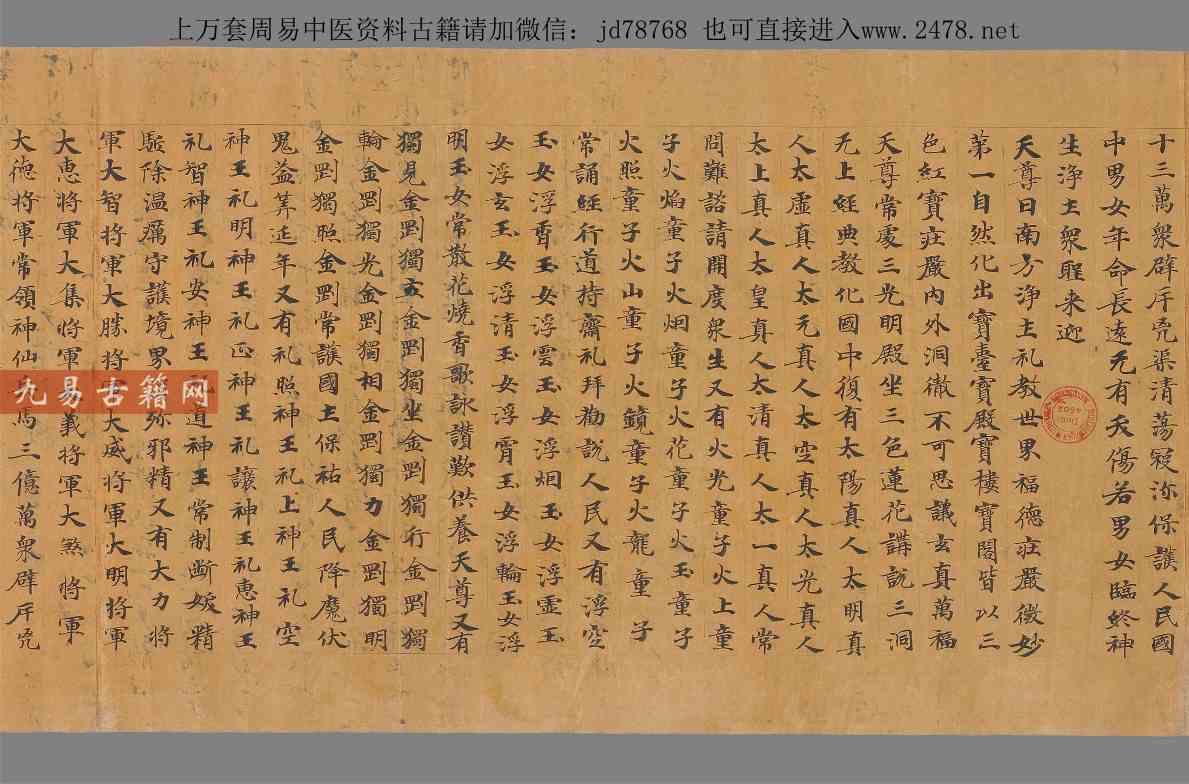 上万套周易中医资料古籍请加微信：jd78768 也可直接进入www.2478.net
十三萬衆辟斥㐫渠清蕩寇沴保護人民國
中男女年命長遠无有夭傷若男女臨終神
生浄土衆聖来迎
天尊曰南方浄土礼教世界福德莊嚴微妙
苐一自然化出寳臺寳殿寳樓寳閣皆以三
色紅寳莊嚴内外洞徹不可思議玄真萬福
天尊常處三光明殿坐三色蓮花講說三洞
无上經典教化國中復有太陽真人太明真
人太虚真人太元真人太空真人太光真人
太上真人太皇真人太清真人太一真人常
問難諮請開度衆生又有火光童子火上童
子火焰童子火烟童子火花童子火玉童子
火照童子火山童子火鏡童子火龍童子
常誦經行道持齋礼拜勸說人民又有浮空
玉女浮香玉女浮雲玉女浮烟玉女浮霊玉
女浮玄玉女浮清玉女浮霄玉女浮輪玉女浮
明玉女常散花燒香歌詠讃歎供養天尊又有
獨見金剛獨立金剛獨坐金剛獨行金剛獨
輪金剛獨光金剛獨相金剛獨力金剛獨明
金剛獨照金剛常護國土保祐人民降魔伏
鬼益筭延年又有礼照神王礼上神王礼空
神王礼明神王礼正神王礼讓神王礼惠神王
礼智神王礼安神王礼道神王常制断妖精
駈除温癘守護境界 弥邪精又有大力將
軍大智將軍大勝將 大威將軍大明將軍
大恵將軍大集將軍 義將軍大煞將軍
大德將軍常領神仙 馬三億萬衆辟斥㐫
九易古籍网